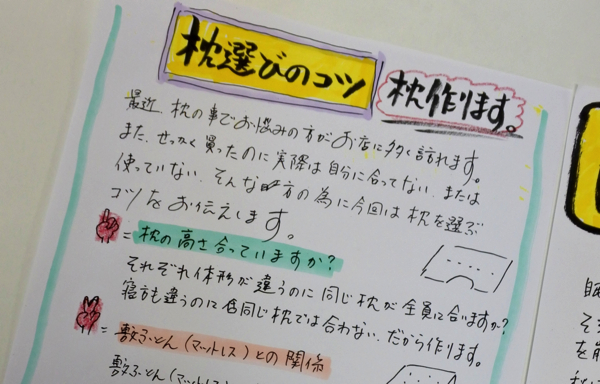 枕選びのコツ
枕作ります。
最近、枕の事でお悩みの方がお店に多く訪れます。
また、せっかく買ったのに実際は自分に合ってない、または
使っていない、そんな方の為に今回は枕を選ぶ
コツをお伝えします。
= 枕の高さ合っていますか?
それぞれ体形が違うのに同じ枕が全員に合いますか?
寝方も違うのに同じ枕では合わない。だから作ります。
= 敷ふとん(マットレス)との関係
敷ふとん(マットレス)